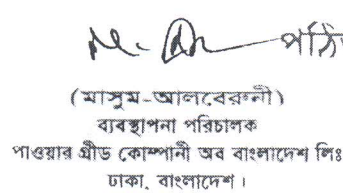 পঠি
(মাসুম-আলবেরুনী)
ব্যবস্থাপনা পরিচালক
পাওয়ার গ্রীড কোম্পানী অব বাংলাদেশ লিঃ
ঢাকা, বাংলাদেশ।